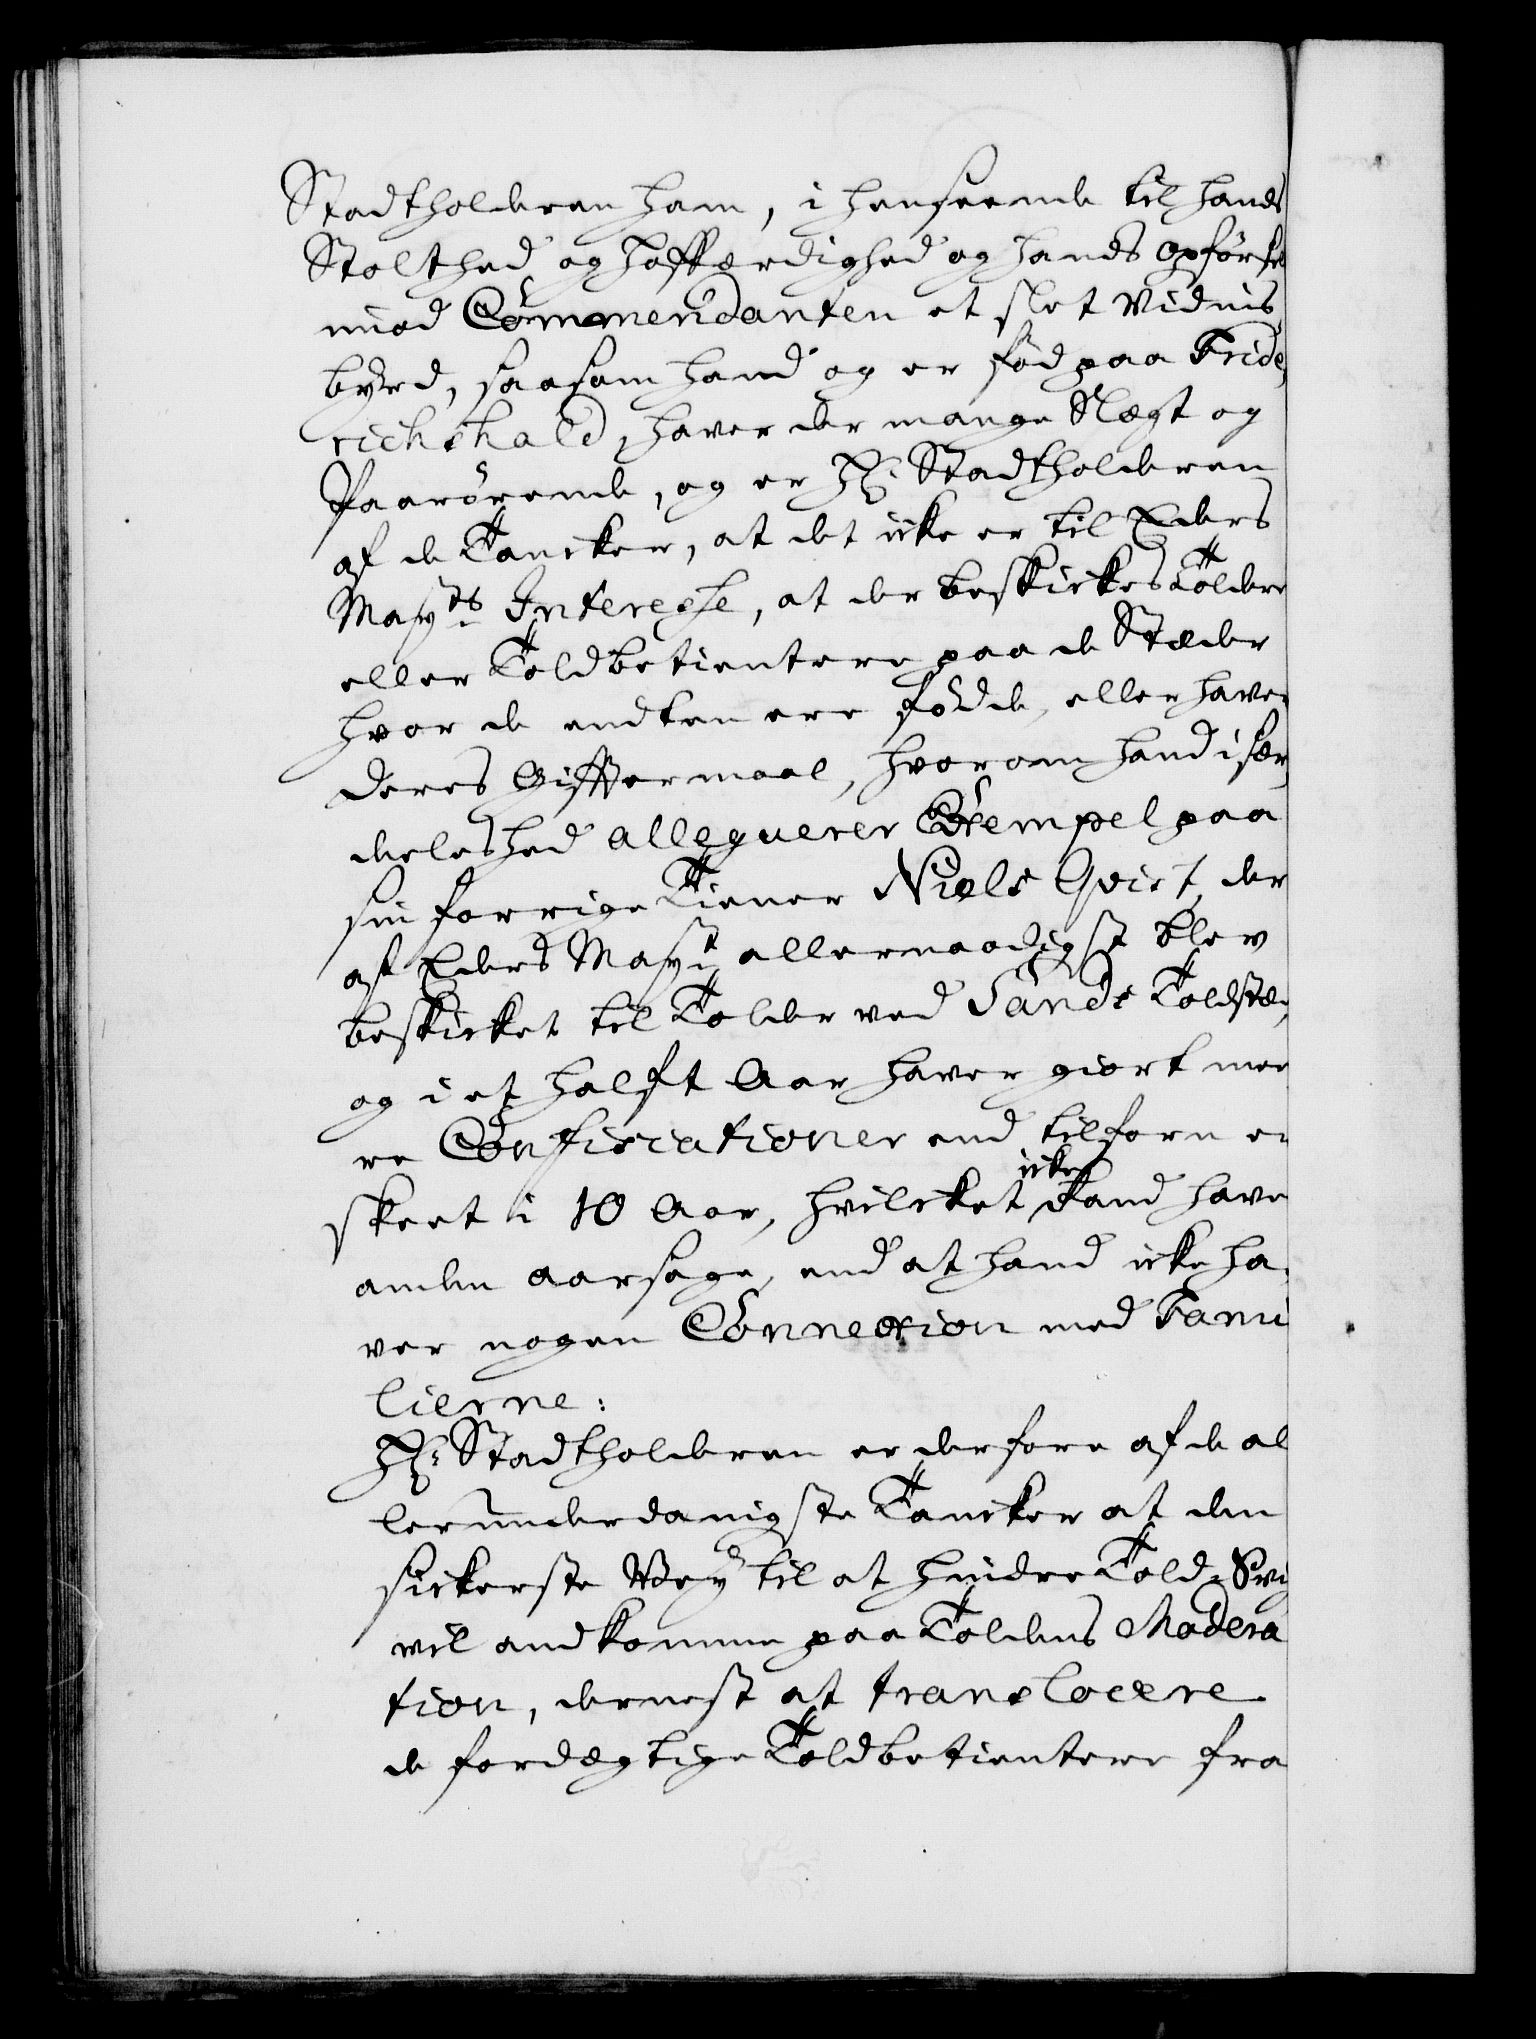 Stadtholderen ham, i henseende til hands
Stolthed og hoffærdighed og hands opförsel
mod Commendanten et slet Vidnis
byrd, saasom hand og er föd paa Fride,
richshald, haver der mange Slegt og
Paarörende, og er Hr: Stadtholderen
af de Tancker, at det icke er til Eders
Mayts Interesse, at der beskickes Toldere
eller Toldbetientere paa de Stæder
hvor de endten ere födde, eller haver
deres Giffvermaal, hvorom hand i sær,
deleshed alleguerer Exempel paa
sin forrige Tiener Niels Qvist, der
af Eders Mayt allernaadigst blev
beskicket til Tolder ved Sands Toldstæd,
og i et halft Aar haver giort mee
re Confiscationer end tilforn er
skeet i 10 Aar, hvilcket icke kand have
anden aarsage, end at hand icke ha,
ver nogen Connexion med Fami
lierne:
Hr: Stadtholderen er derfore af de al
lerunderdanigste Tancker at den
sickerste Vey til at hindre Told-Svig
vil andkomme paa Toldens Modera
tion, dernest at translocere
de fordægtige Toldbetientere fra